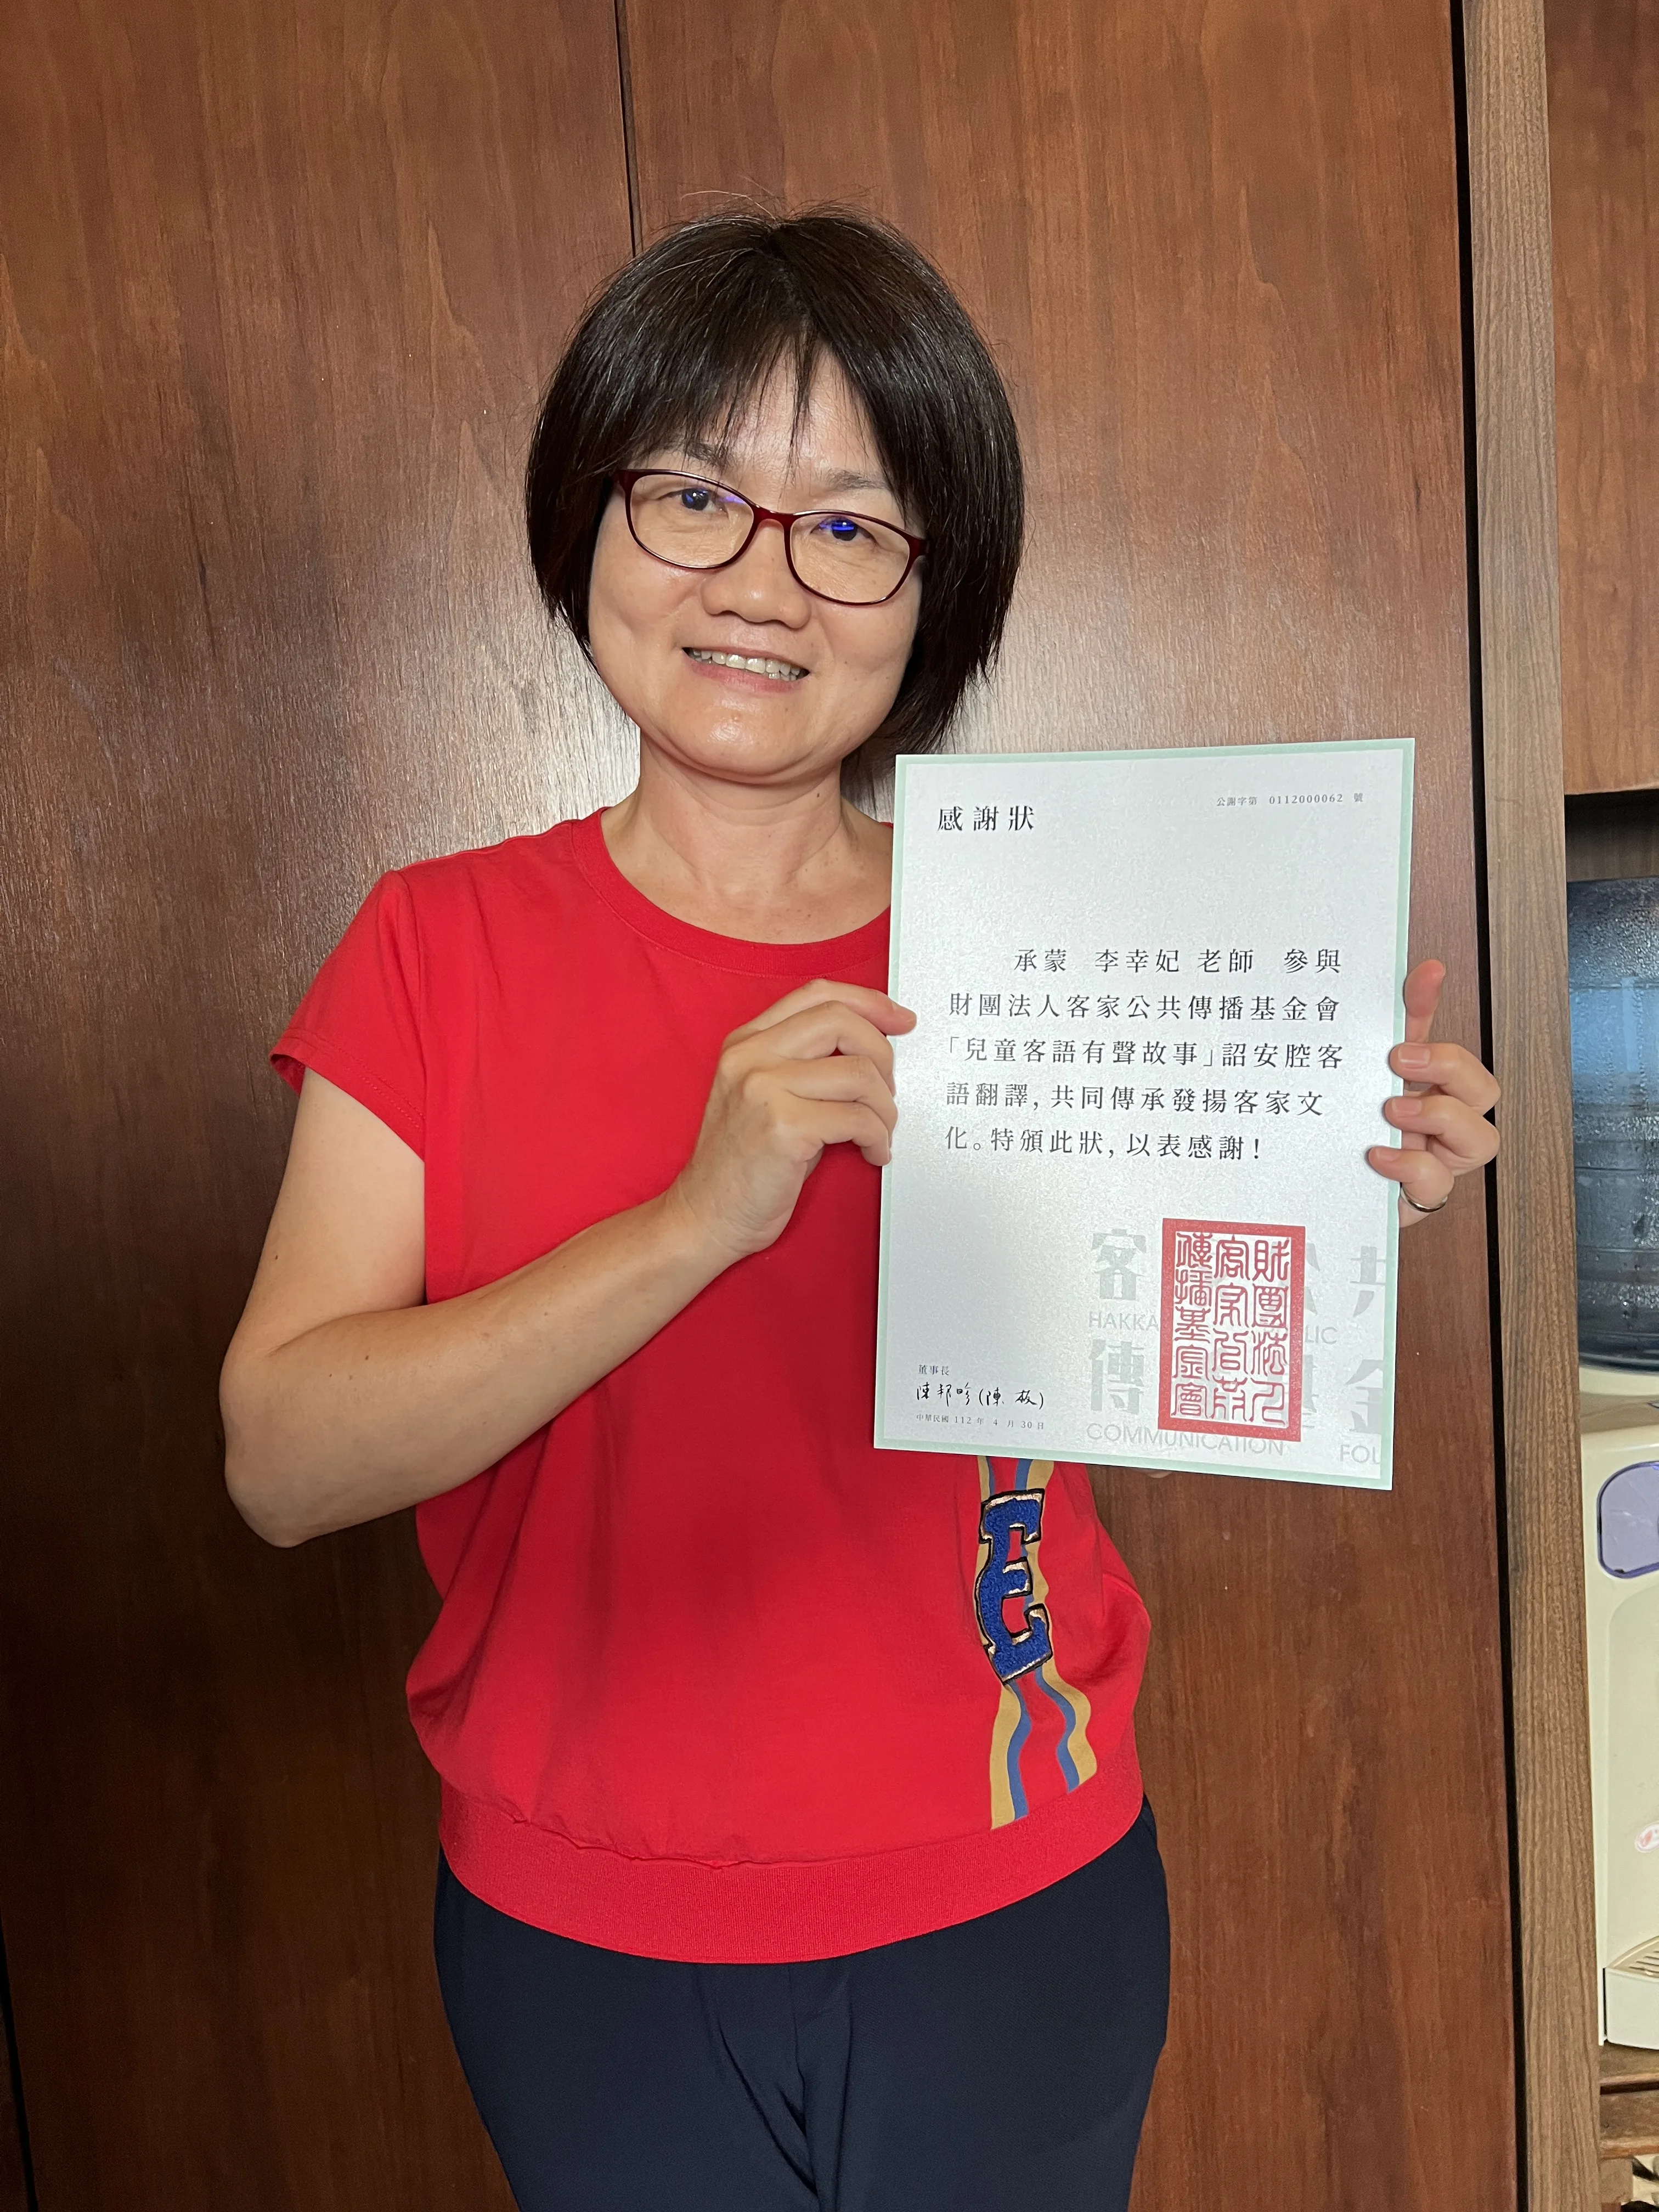 感謝狀
公謝字第 0112000062 號
承蒙 李幸妃 老師 參與
財團法人客家公共傳播基金會
「兒童客語有聲故事」詔安腔客
語翻譯，共同傳承發揚客家文
化。特頒此狀，以表感謝！
客 共
HAKKA LIC
傳 金
COMMUNICATION FOU
財團法人
客家公共
傳播基金會
董事長
陳邦畛(陳板)
中華民國 112 年 4 月 30 日
E